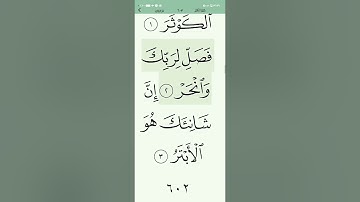 ٱلۡكَوۡثَرَ ١
فَصَلِّ لِرَبِّكَ
وَٱنۡحَرۡ ٢ إِنَّ
شَانِئَكَ هُوَ
ٱلۡأَبۡتَرُ ٣
٦٠٢